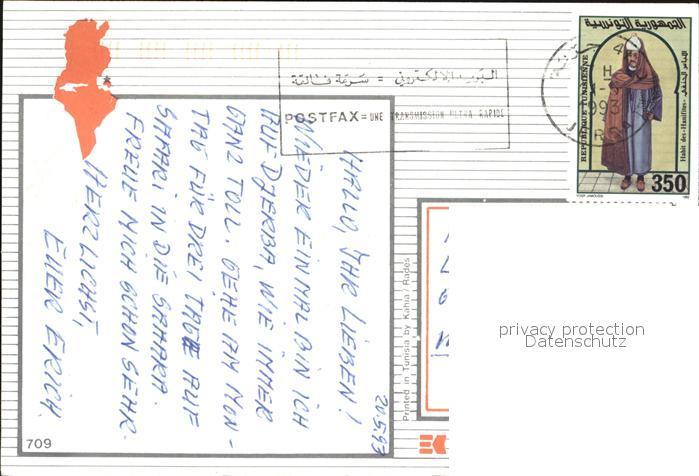 HALLO, IHR LIEBEN!
20.5.93
WIEDER EINMAL BIN ICH
AUF DJERBA, WIE IMMER
GANZ TOLL. GEHE AM MON-
TAG FÜR DREI TAGE AUF
SAFARI IN DIE SAHARA.
FREUE MICH SCHON SEHR.
HERZLICHST,
EUER ERICH.
البريد الالكتروني = سرعة فائقة
POSTFAX = UNE TRANSMISSION ULTRA RAPIDE
الجمهورية التونسية
REPUBLIQUE TUNISIENNE
Habit des «Hanifites»
350
1993
Printed in Tunisia by Kahia / Rades
709
privacy protection
Datenschutz